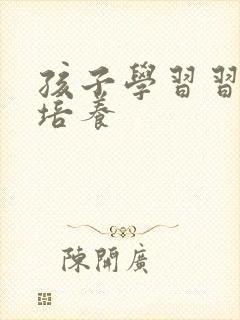 孩子學習習
培養
陳開廣